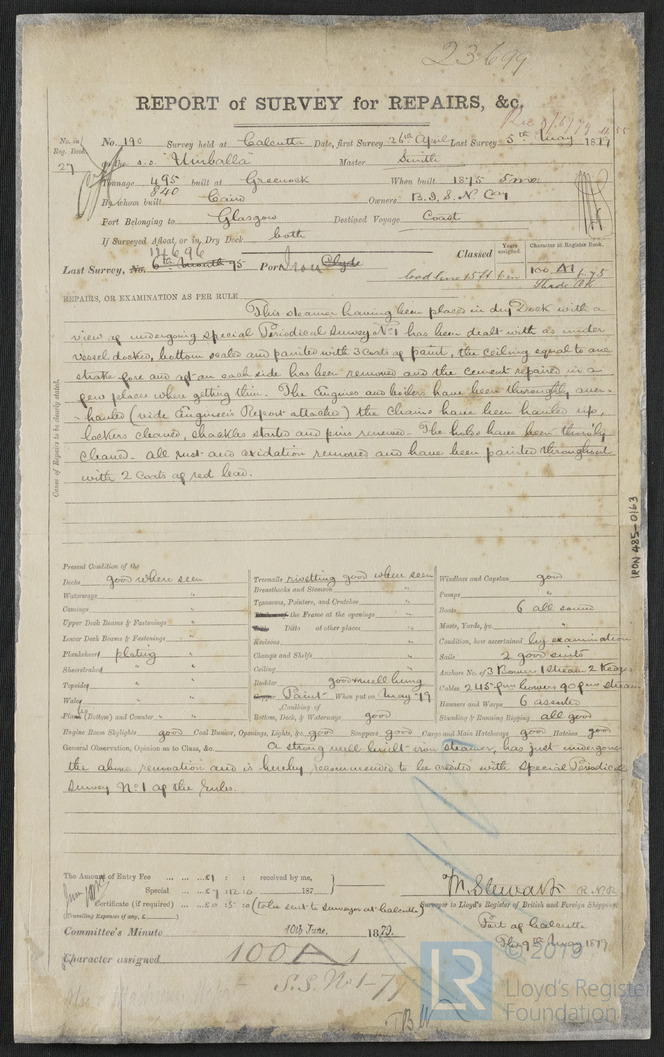 23699
REPORT of SURVEY for REPAIRS, &c.
No. in Reg. Book.
No. 190 Survey held at Calcutta Date, first Survey 26th April Last Survey 5th May 1879
27 on the s.s. Umballa Master Smith
Tonnage 495 built at Greenock When built 1875 5mo
840
By whom built Caird Owners B.I.S.N. Coy
Port Belonging to Glasgow Destined Voyage Coast
If Surveyed Afloat, or in Dry Dock both
Last Survey, No. 6th month 75 Port Clyde Classed
Years assigned
Character at Register Book.
load line 15 ft 6 in 100 A1 6.75
REPAIRS, OR EXAMINATION AS PER RULE
This steamer having been placed in dry Dock with a
view of undergoing Special Periodical Survey No 1 has been dealt with as under
vessel docked, bottom scaled and painted with 3 coats of paint, the ceiling equal to one
strake fore and aft on each side has been removed and the cement repaired in a
few places when getting thin. The Engines and boilers have been thoroughly over-
-hauled (vide Engineer's Report attached) the chains have been hauled up,
lockers cleaned, shackles started and pins renewed. The holds have been thoro'ly
cleaned. all rust and oxidation removed and have been painted throughout
with 2 coats of red lead.
Cause of Repairs to be clearly stated.
IRON 485-0163
Present Condition of the
Decks good where seen
Waterways "
Comings "
Upper Deck Beams & Fastenings "
Lower Deck Beams & Fastenings "
Planksheers plating "
Sheerstrakes "
Topsides "
Wales "
Plank (Bottom) and Counter "
Treenails rivetting good where seen
Breasthooks and Stemson "
Transoms, Pointers, and Crutches "
the Frame at the openings "
Ditto at other places "
Keelsons "
Clamps and Shelfs "
Ceiling "
Rudder good & well hung
Paint When put on May 79
Caulking of
Bottom, Deck, & Waterways good
Windlass and Capstan good
Pumps "
Boats 6 all sound
Masts, Yards, &c. "
Condition, how ascertained by examination
Sails 2 good suits
Anchors No. of 3 Bower 1 Stream 2 Kedges
Cables 245 fm bowers 90 fm stream
Hawsers and Warps 6 assorted
Standing & Running Rigging all good
Engine Room Skylights good Coal Bunker, Openings, Lights, &c. good Scuppers good Cargo and Main Hatchways good Hatches good
General Observation, Opinion as to Class, &c. A strong well built iron steamer, has just undergone
the above renovation and is hereby recommended to be credited with Special Periodical
Survey No 1 of the Rules.
The Amount of Entry Fee ... £1 : : received by me,
Special ... £7 : 12 : 0 187
Certificate (if required) ... £0 : 5 : 0 (to be sent to surveyor at Calcutta)
(Travelling Expenses if any, £ )
M. Stewart R.N.R.
Surveyor to Lloyd's Register of British and Foreign Shipping.
Port of Calcutta
The 9th May 1879
Committee's Minute 10th June, 1879.
Character assigned 100 A1
S.S. No 1-79
© 2019
LR
Lloyd's Register
Foundation